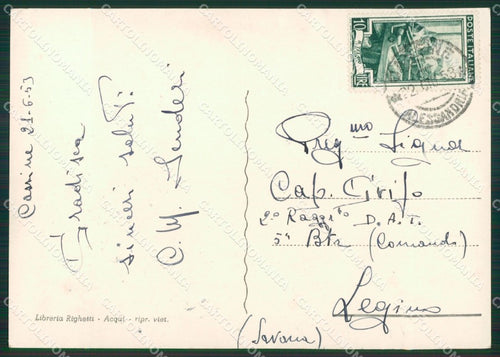 Cassine 21-6-53
Gradisca
sinceri saluti
C. M.
Libreria Righetti - Acqui - ripr. viet.
POSTE ITALIANE
10
LIRE
ALESSANDRIA
Preg.mo Signor
Cap. Grifo
2º Ragg.to D.A.T.
5ª Btr (Comando)
Legino
(Savona)
CARTOLINOMANIA